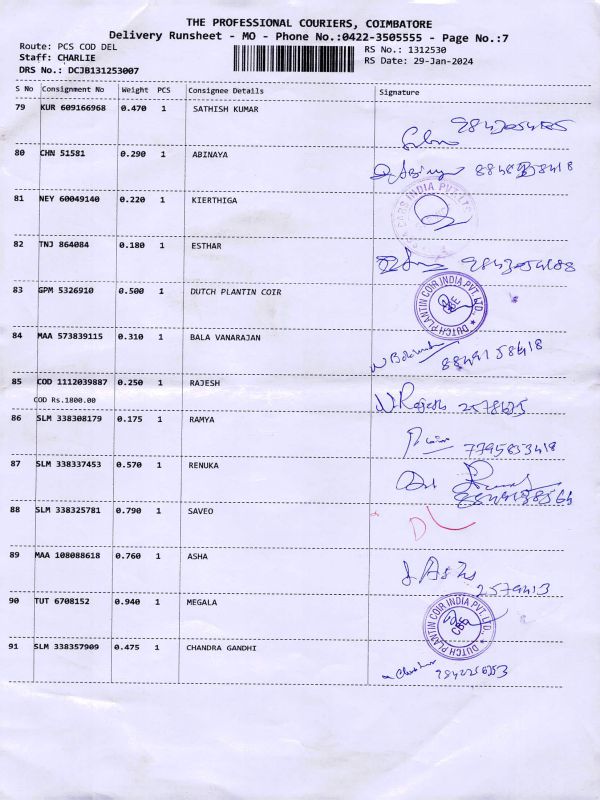 THE PROFESSIONAL COURIERS, COIMBATORE
Delivery Runsheet - MO - Phone No.:0422-3505555 - Page No.:7
Route: PCS COD DEL
Staff: CHARLIE
DRS No.: DCJB131253007
RS No.: 1312530
RS Date: 29-Jan-2024
S No Consignment No Weight PCS Consignee Details Signature
79 KUR 609166968 0.470 1 SATHISH KUMAR
80 CHN 51581 0.290 1 ABINAYA
81 NEY 60049140 0.220 1 KIERTHIGA
INDIA PVT
82 TNJ 864084 0.180 1 ESTHAR
83 GPM 5326910 0.500 1 DUTCH PLANTIN COIR
DUTCH PLANTIN COIR INDIA PVT. LTD.
84 MAA 573839115 0.310 1 BALA VANARAJAN
85 COD 1112039887 0.250 1 RAJESH N Rajesh
COD Rs.1800.00
86 SLM 338308179 0.175 1 RAMYA
7795833418
87 SLM 338337453 0.570 1 RENUKA
88 SLM 338325781 0.790 1 SAVEO DL
89 MAA 108088618 0.760 1 ASHA
2579413
90 TUT 6708152 0.940 1 MEGALA
DUTCH PLANTIN COIR INDIA PVT. LTD.
CBE
91 SLM 338357909 0.475 1 CHANDRA GANDHI